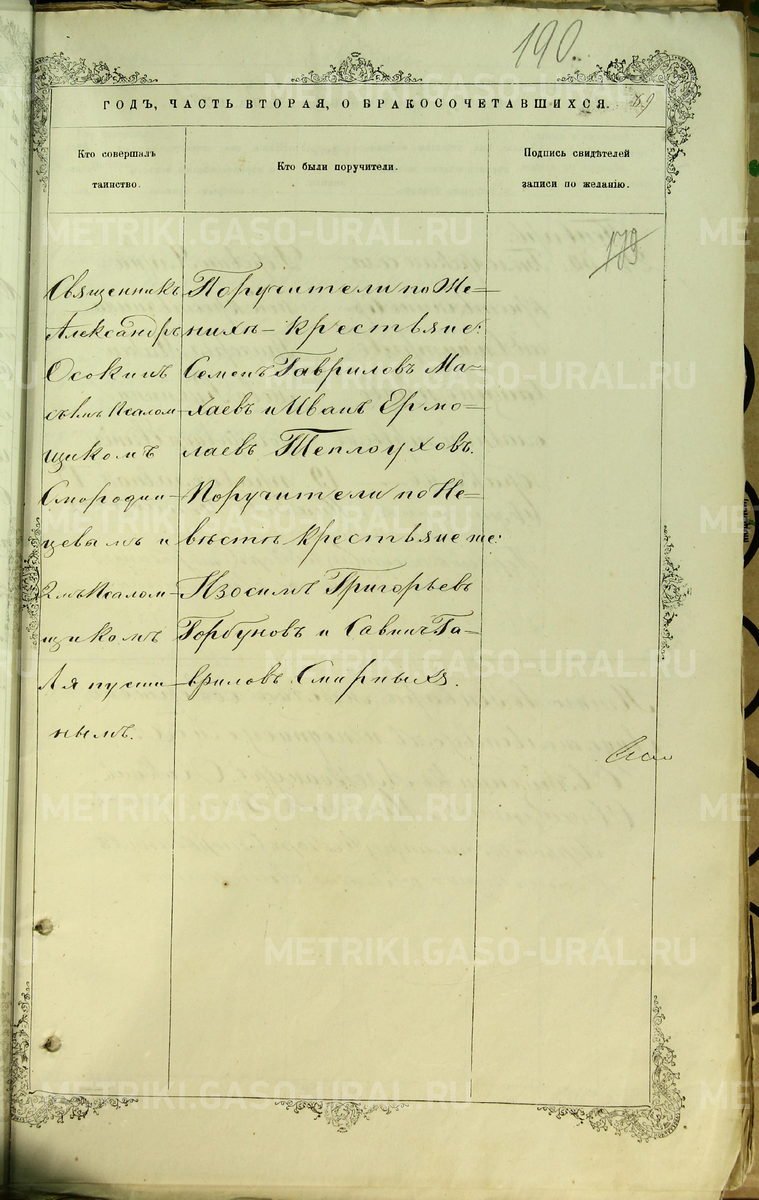 190.
ГОДЪ, ЧАСТЬ ВТОРАЯ, О БРАКОСОЧЕТАВШИХСЯ.
Кто совершалъ
таинство.
Кто были поручители.
Подпись свидѣтелей
записи по желанію.
179
Священникъ
Александръ
Осокинъ
съ 1мъ Псалом-
щикомъ
Смородин-
цевымъ и
2мъ Псалом-
щикомъ
Ляпусти-
нымъ.
Поручители по Же-
нихѣ - крестьяне:
Семенъ Гавриловъ Ма-
хаевъ и Иванъ Ермо-
лаевъ Теплоуховъ.
Поручители по Не-
вѣстѣ крестьяне же:
Изосимъ Григорьевъ
Горбуновъ и Савинъ Га-
вриловъ Смирныхъ.
METRIKI.GASO-URAL.RU